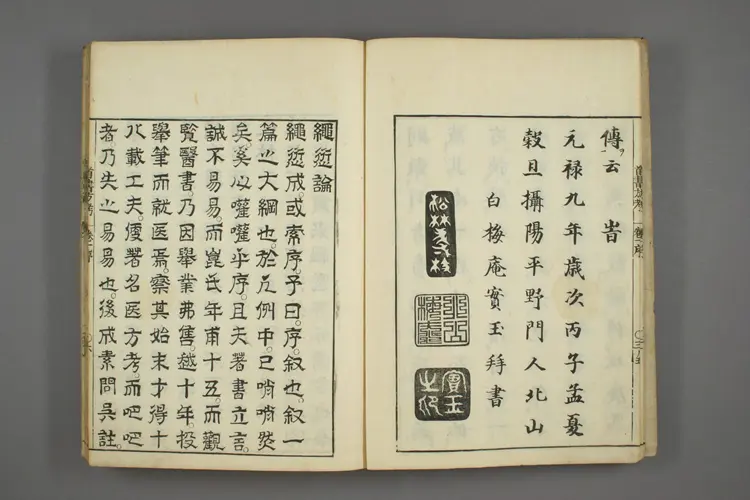 傳云旹
元禄九年歳次丙子孟夏
穀旦攝陽平野門人北山
白梅庵實玉拜書
寶玉之印
繩愆論
繩愆成。或索序。予曰。序。叙也。叙一
篇之大綱也。於凡例中。已哨哨然
矣。奚必嚾嚾乎序。且夫著書立言。
誠不易易。而崑氏年甫十五。而觀
覽醫書。乃因舉業弗售。越十年。投
舉筆而就医焉。察其始末。才得十
八載工夫。便著名医方考。而吧吧
者。乃失之易易也。後成素問吳註。